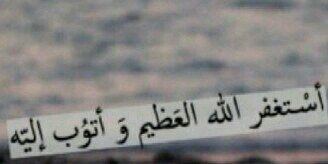 أسْتغفر الله العَظيم وَ أتوُب إليّه